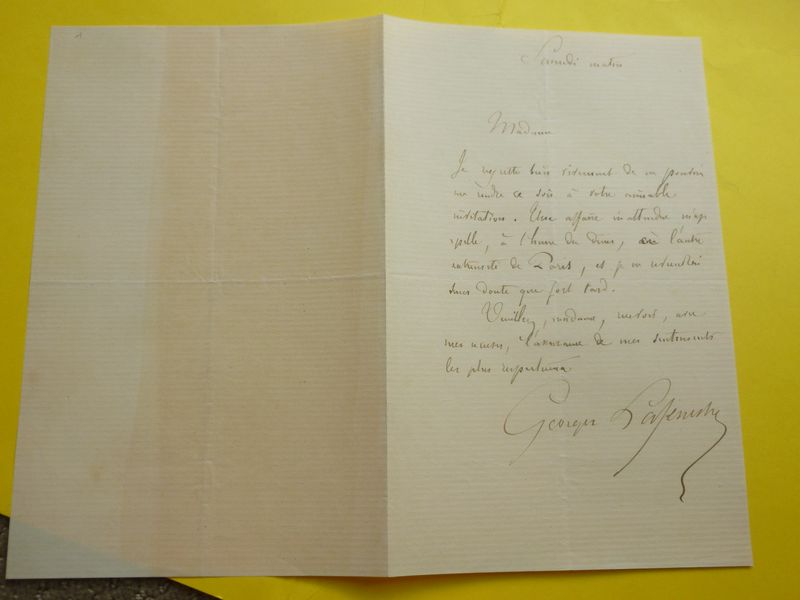 Samedi matin
Madame
Je regrette bien vivement de ne pouvoir
me rendre ce soir à votre aimable
invitation. Une affaire inattendue m'ap
pelle, à l'heure du diner, à l'autre
extremité de Paris, et je n'en reviendrai
sans doute que fort tard.
Veuillez, madame, recevoir, avec
mes excuses, l'assurance de mes sentiments
les plus respectueux
Georges Lafenestre